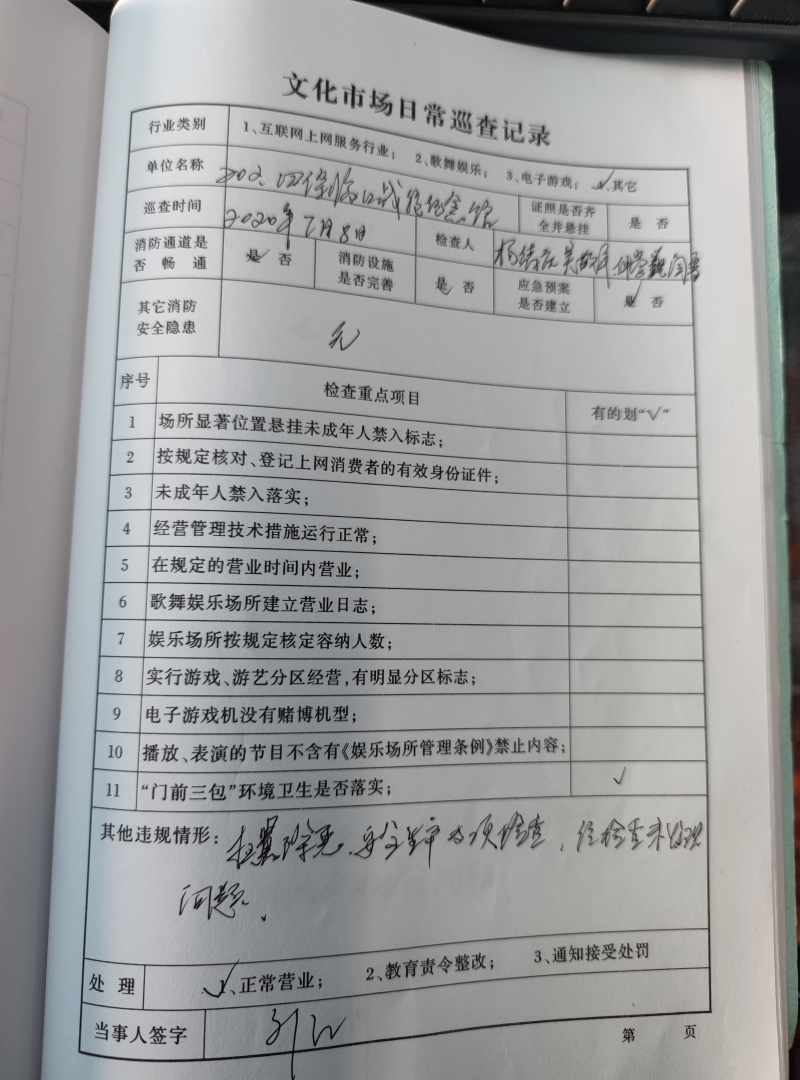 文化市场日常巡查记录
行业类别 1、互联网上网服务行业； 2、歌舞娱乐； 3、电子游戏； 4、其它
单位名称 四保临江战役纪念馆 证照是否齐全并悬挂 是 否
巡查时间 2020年7月8日 检查人
消防通道是否畅通 是 否 消防设施是否完善 是 否 应急预案是否建立 是 否
其它消防安全隐患 无
序号 检查重点项目 有的划“√”
1 场所显著位置悬挂未成年人禁入标志；
2 按规定核对、登记上网消费者的有效身份证件；
3 未成年人禁入落实；
4 经营管理技术措施运行正常；
5 在规定的营业时间内营业；
6 歌舞娱乐场所建立营业日志；
7 娱乐场所按规定核定容纳人数；
8 实行游戏、游艺分区经营，有明显分区标志；
9 电子游戏机没有赌博机型；
10 播放、表演的节目不含有《娱乐场所管理条例》禁止内容；
11 “门前三包”环境卫生是否落实； √
其他违规情形：扫黑除恶、安全生产 检查，经检查未发现
问题。
处理 1、正常营业； 2、教育责令整改； 3、通知接受处罚
当事人签字
第 页